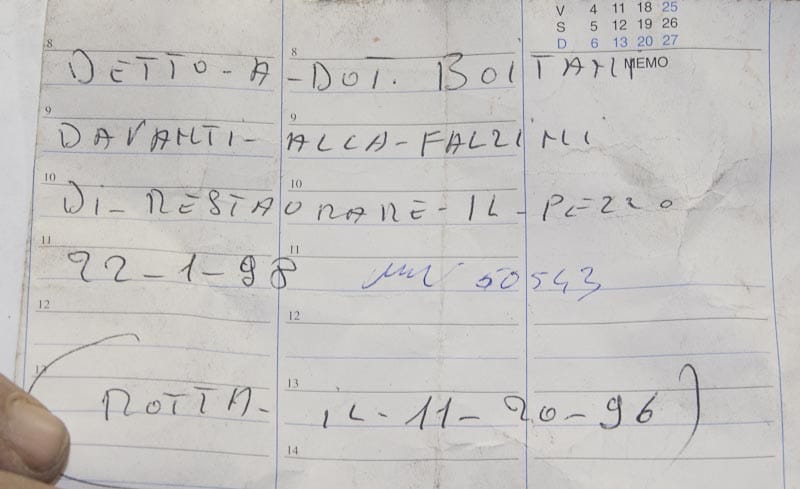 V 4 11 18 25
S 5 12 19 26
D 6 13 20 27
MEMO
8 8
DETTO-A -DOT. BOITANI
9 9
DAVANTI- ALLA-FALZINI
10 10
DI-RESTAORARE-IL-PEZZO
11 11
22-1-98 50543
12 12
13
ROTTA- IL-11-20-96)
14